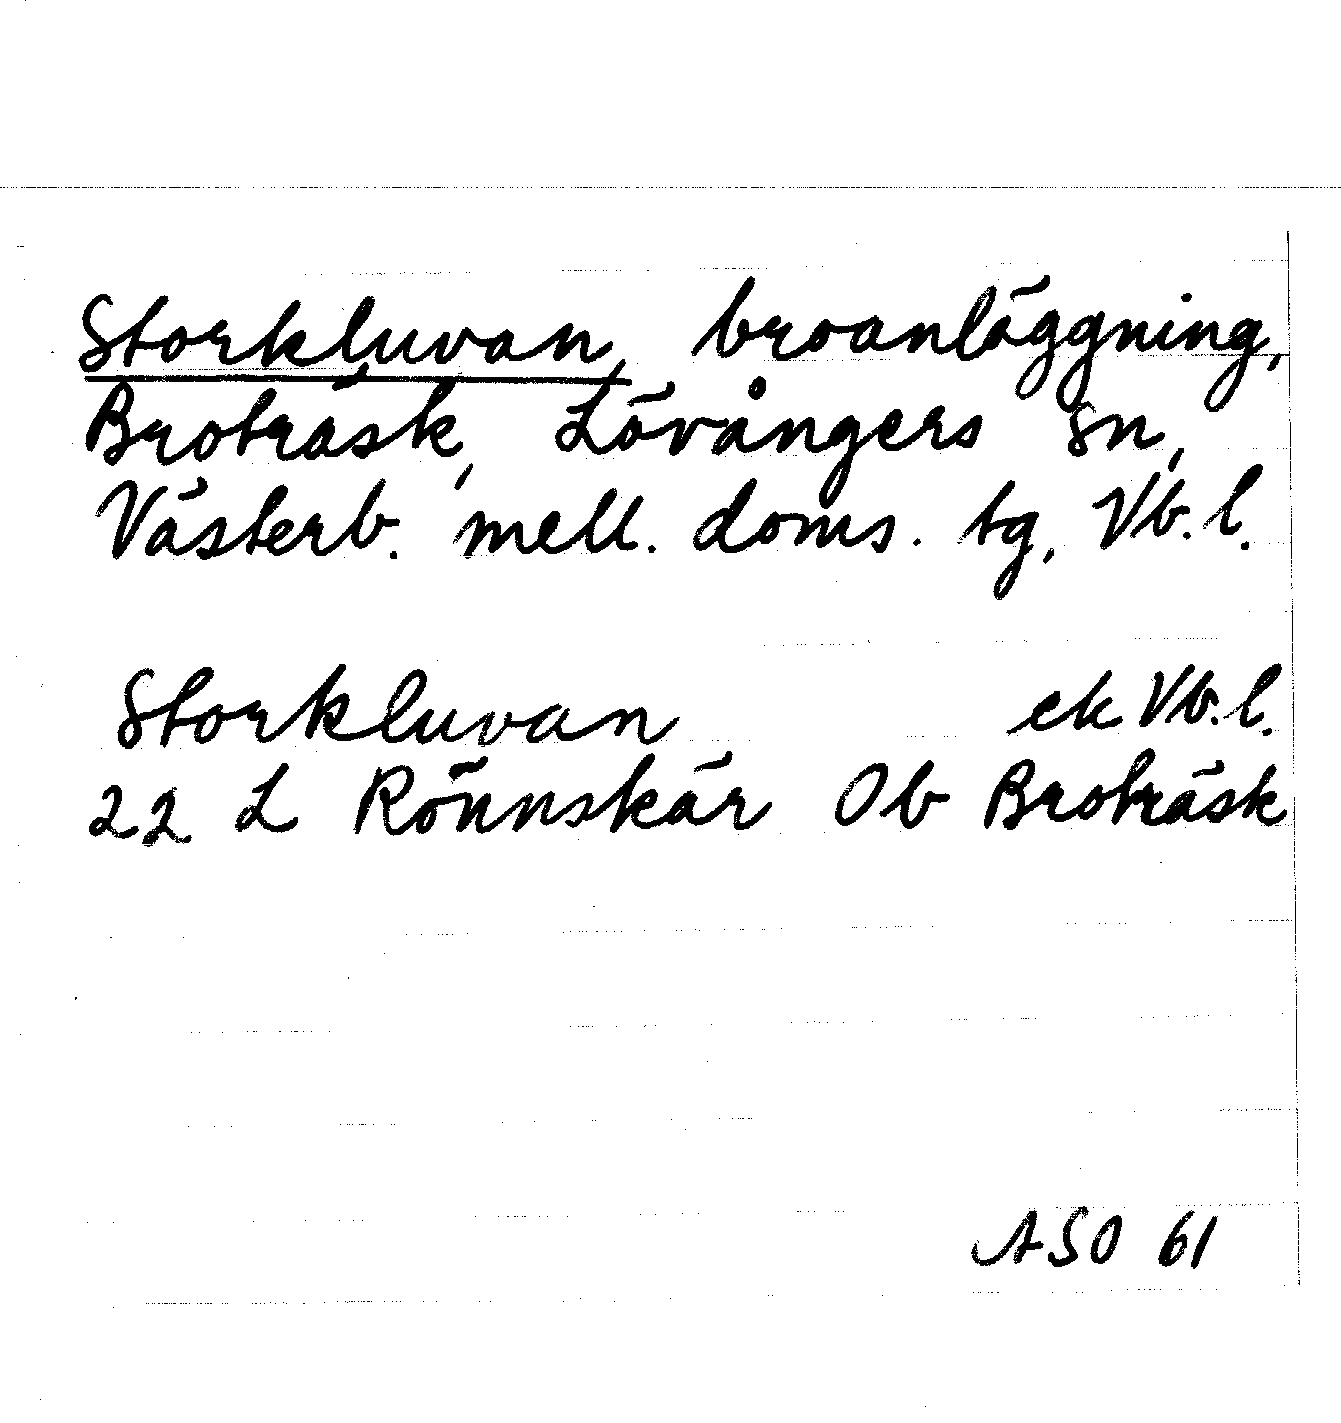 Storkluvan, broanläggning,
Broträsk, Lövångers sn,
Västerb. mell. doms. tg, Vb. l.
Storkluvan ek Vb. l.
22 L Rönnskär Ob Broträsk
ASO 61